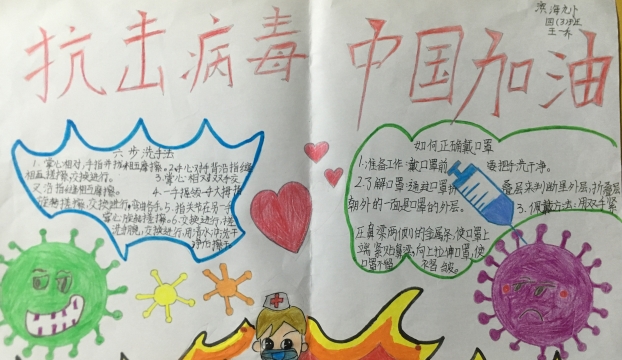 抗击病毒 中国加油
滨海九小
四(3)班
王一乔
六步洗手法
1.掌心相对,手指并拢相互摩擦。2.手心对手背沿指缝
相互揉搓,交换进行。3.掌心相对双手交
叉沿指缝相互摩擦。4.一手握另一手大拇指
旋转揉搓,交换进行。5.指关节在另一手
掌心旋转揉搓,交换进行。6.
揉搓,交换进行,用清水冲洗干
净
如何正确戴口罩
1.准备工作:戴口罩前 要把手洗干净。
2.了解口罩:通戴口罩折 叠层来判断里外层,折叠层
朝外的一面是口罩的外层。 3.佩戴方法:用双手紧
压鼻梁两侧的金属条,使口罩上
端紧贴鼻梁,向下拉伸口罩,使
口罩不留 有 皱。